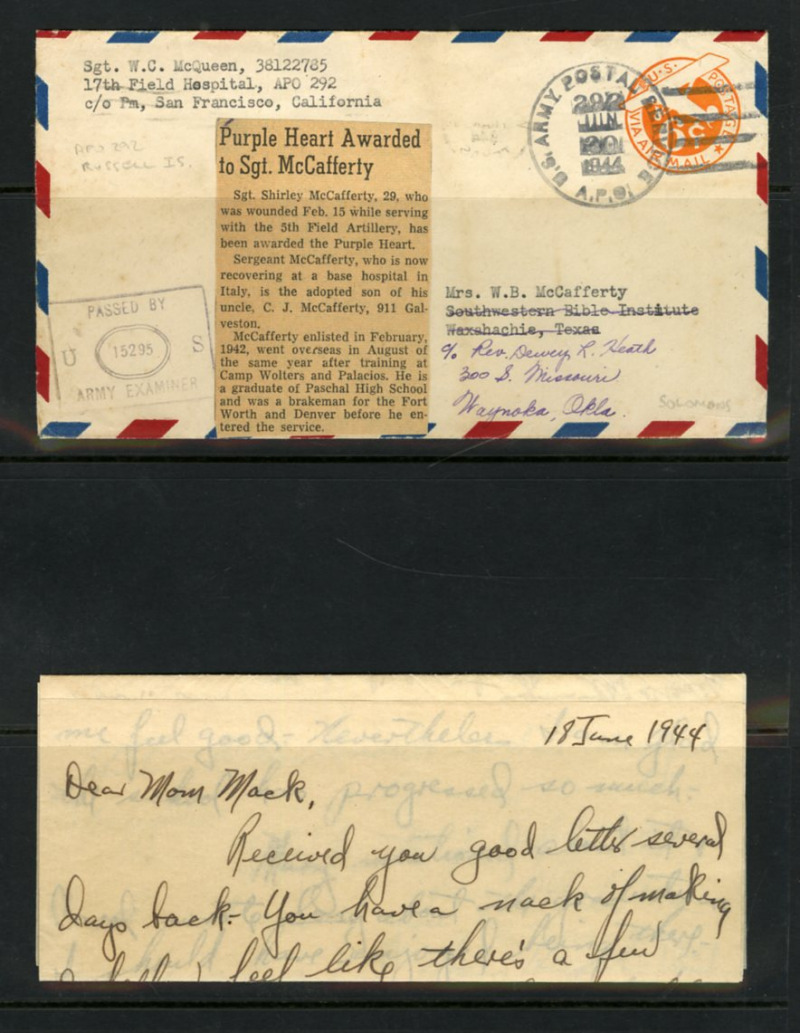 Sgt. W.C. McQueen, 38122785
17th Field Hospital, APO 292
c/o Pm, San Francisco, California
APO 292
RUSSELL IS.
U.S. ARMY POSTAL
292
JUN
20
1944
A.P.O.
U.S. POSTAGE
6C
VIA AIR MAIL
Purple Heart Awarded
to Sgt. McCafferty
Sgt. Shirley McCafferty, 29, who
was wounded Feb. 15 while serving
with the 5th Field Artillery, has
been awarded the Purple Heart.
Sergeant McCafferty, who is now
recovering at a base hospital in
Italy, is the adopted son of his
uncle, C. J. McCafferty, 911 Gal-
veston.
McCafferty enlisted in February,
1942, went overseas in August of
the same year after training at
Camp Wolters and Palacios. He is
a graduate of Paschal High School
and was a brakeman for the Fort
Worth and Denver before he en-
tered the service.
PASSED BY
U 15295 S
ARMY EXAMINER
Mrs. W.B. McCafferty
Southwestern Bible Institute
Waxahachie, Texas
c/o Rev. Dewey L. Heath
300 S. Missouri
Waynoka, Okla.
SOLOMONS
18 June 1944
Dear Mom Mack,
Received you good letter several
days back:- You have a nack of making
feel like there's a few
me feel good:- Nevertheless
progressed so much:-